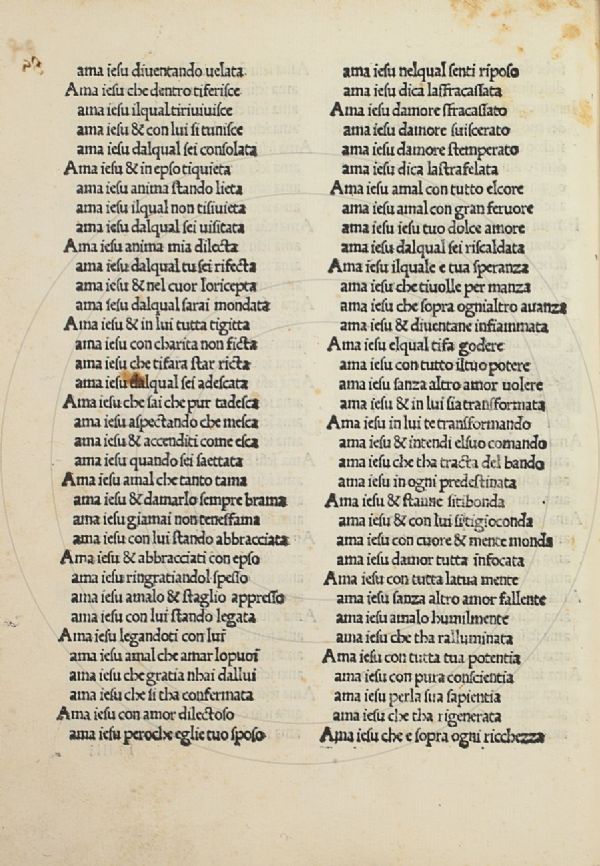 ama iesu diuentando uelata
Ama iesu che dentro tiferisce
ama iesu ilqual tiriuiuisce
ama iesu & con lui si tunisce
ama iesu dalqual sei consolata
Ama iesu & in epso tiquieta
ama iesu anima stando lieta
ama iesu ilqual non tisiuieta
ama iesu dalqual sei uisitata
Ama iesu anima mia dilecta
ama iesu dalqual tu sei rifecta
ama iesu & nel cuor loricepta
ama iesu dalqual sarai mondata
Ama iesu & in lui tutta tigitta
ama iesu con charita non ficta
ama iesu che tifara star ricta
ama iesu dalqual sei adescata
Ama iesu che sai che pur tadesca
ama iesu aspectando che mesca
ama iesu & accenditi come esca
ama iesu quando sei saettata
Ama iesu amal che tanto tama
ama iesu & damarlo sempre brama
ama iesu giamai non tenesfama
ama iesu con lui stando abbracciata
Ama iesu & abbracciati con epso
ama iesu ringratiandol spesso
ama iesu amalo & staglio appresso
ama iesu con lui stando legata
Ama iesu legandoti con lui
ama iesu amal che amar lopuoi
ama iesu che gratia nhai dallui
ama iesu che si tha confermata
Ama iesu con amor dilectoso
ama iesu peroche eglie tuo sposo
ama iesu nelqual senti riposo
ama iesu dica lassracassata
Ama iesu damore sfracassato
ama iesu damore suiscerato
ama iesu damore stemperato
ama iesu dica lastrafelata
Ama iesu amal con tutto elcore
ama iesu amal con gran feruore
ama iesu iesu tuo dolce amore
ama iesu dalqual sei riscaldata
Ama iesu ilquale e tua speranza
ama iesu che tiuolle per manza
ama iesu che sopra ognialtro auanza
ama iesu & diuentane infiammata
Ama iesu elqual tifa godere
ama iesu con tutto iltuo potere
ama iesu sanza altro amor uolere
ama iesu & in lui sia transformata
Ama iesu in lui te transformando
ama iesu & intendi elsuo comando
ama iesu che tha tracta del bando
ama iesu in ogni predestinata
Ama iesu & stanne sitibonda
ama iesu & con lui sitigioconda
ama iesu con cuore & mente monda
ama iesu damor tutta infocata
Ama iesu con tutta latua mente
ama iesu sanza altro amor fallente
ama iesu amalo humilmente
ama iesu che tha ralluminata
Ama iesu con tutta tua potentia
ama iesu con pura conscientia
ama iesu perla sua sapientia
ama iesu che tha rigenerata
Ama iesu che e sopra ogni ricchezza